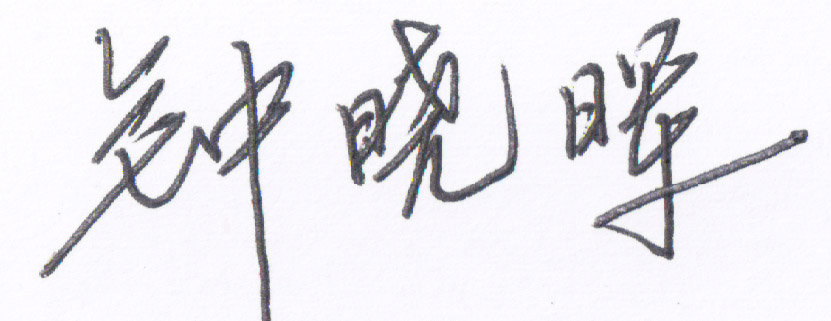 钟晓晖